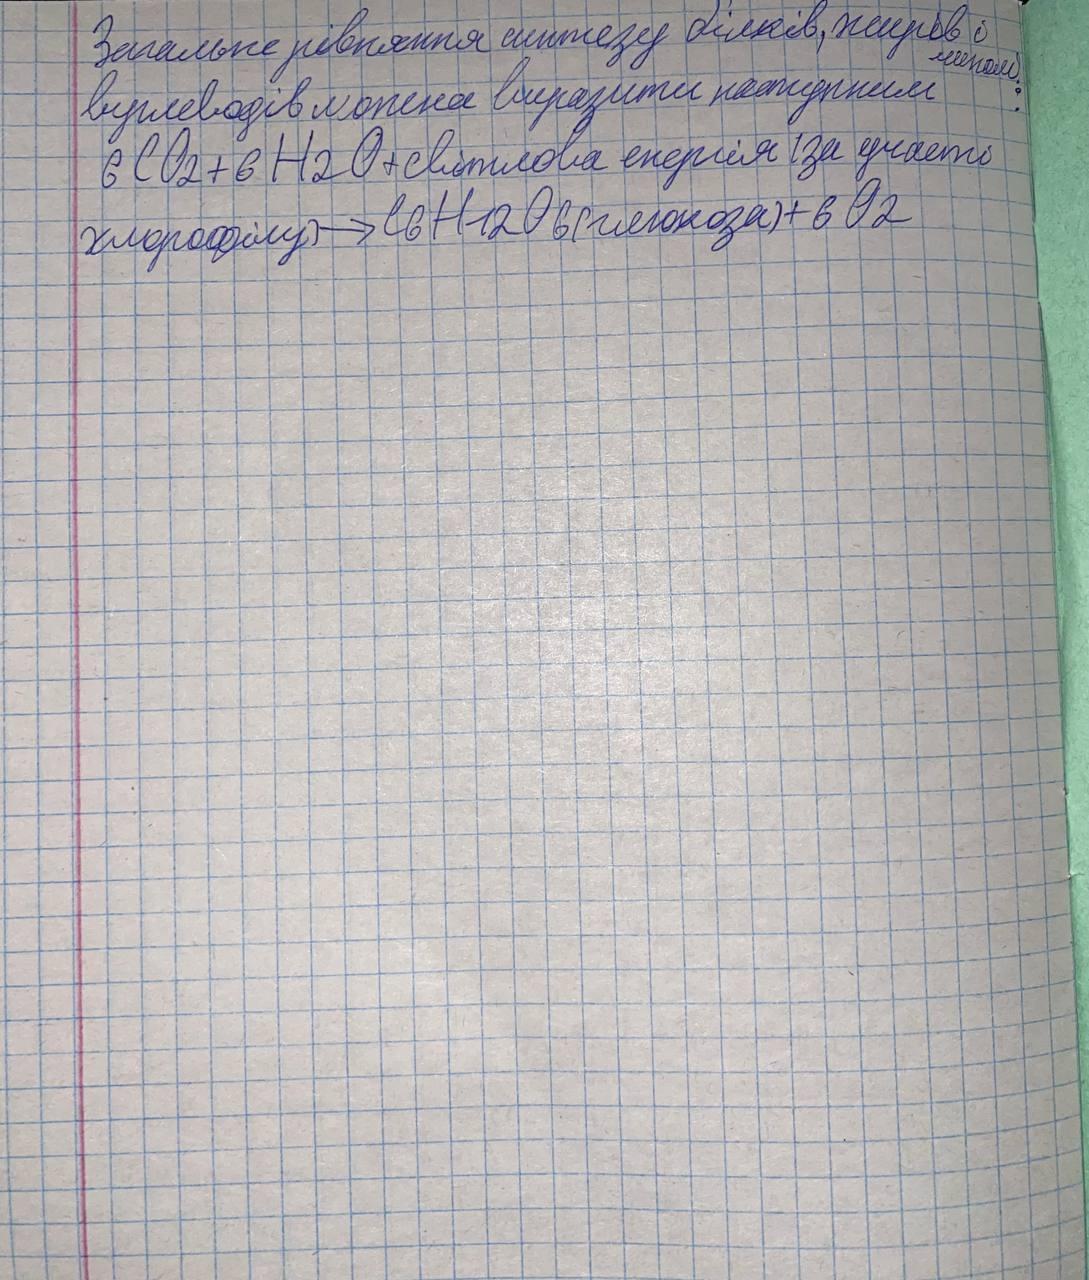 Загальне рівняння синтезу білків, жирів і
вуглеводів можна виразити наступним
чином:
6CO2+6H2O+світлова енергія (за участю
хлорофілу)→C6H12O6(глюкоза)+6O2